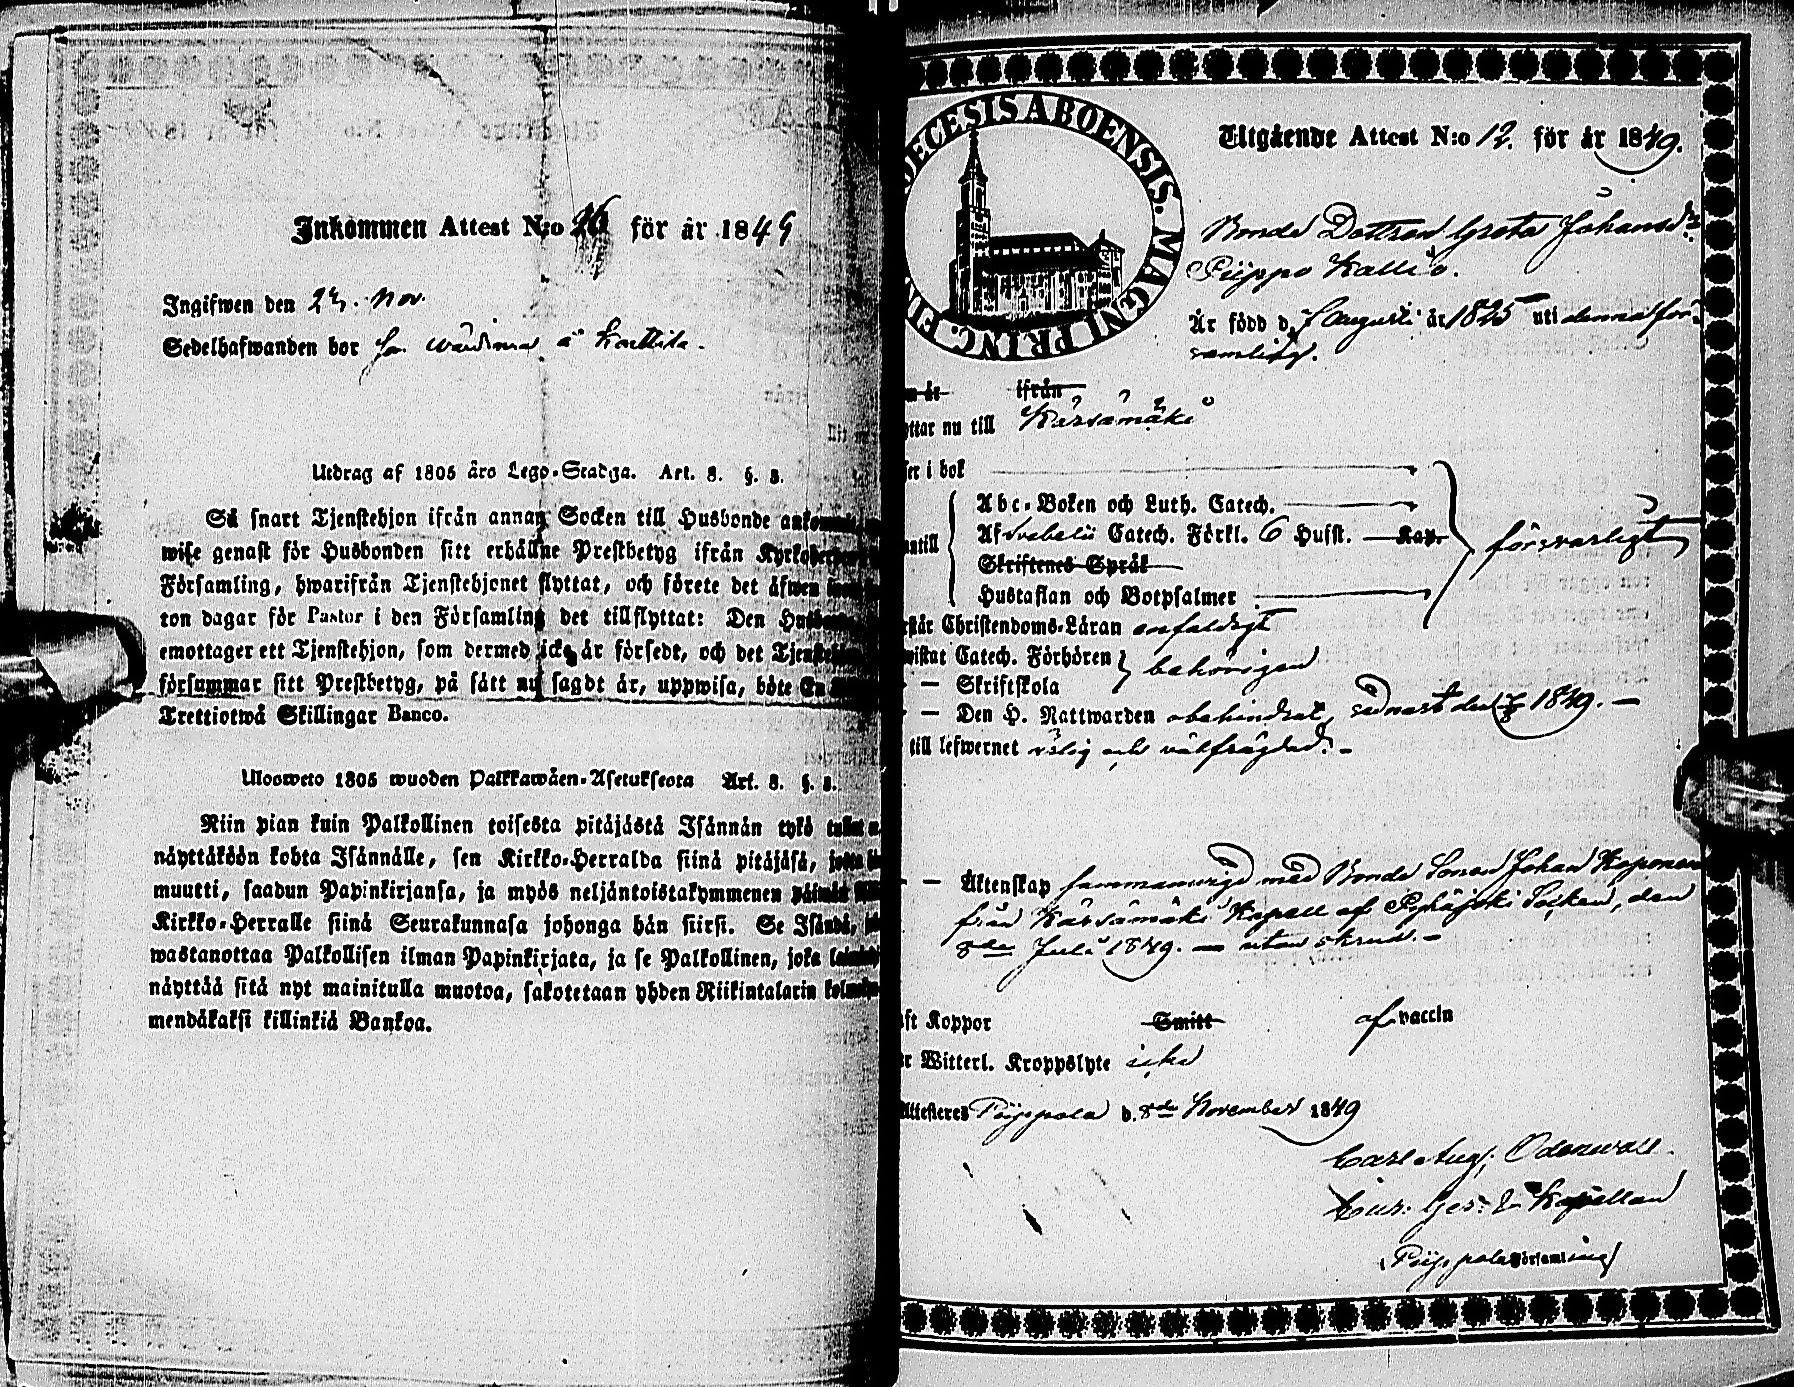 Inkommen Attest N:o 26 för år 1849
Ingifwen den 22. Nov.
Sedelhafwanden bor
Utdrag af 1805 års Lego-Stadga. Art. 8. §. 3.
Så snart Tjenstehjon ifrån annan Socken till Husbonde
wise genast för Husbonden sitt erhållne Prestbetyg ifrån
Församling, hwarifrån Tjenstehjonet flyttat, och förete det äfwen
ton dagar för Pastor i den Församling det tillflyttat: Den
emottager ett Tjenstehjon, som dermed icke är försedt, och det
försummar sitt Prestbetyg, på sätt nu sagdt är, uppwisa, böte En
Trettiotwå Skillingar Banco.
Ulosweto 1805 wuoden Palkkawäen-Asetuksesta Art. 8. §. 3.
Niin pian kuin Palkollinen toisesta pitäjästä Isännän tykö
näyttäköön kohta Isännälle, sen Kirkko-Herralda siinä pitäjäsä,
muutti, saadun Papinkirjansa, ja myös neljäntoistakymmenen
Kirkko-Herralle siinä Seurakunnasa johonga hän siirsi. Se Isändä,
wastanottaa Palkollisen ilman Papinkirjata, ja se Palkollinen, joka
näyttää sitä nyt mainitulla muotoa, sakotetaan yhden Riikintalarin
mendäkaksi killinkiä Bankoa.
DIOECESIS ABOENSIS. MAGNI PRINC. FIN
Utgående Attest N:o 12. för år 1849.
Bonde Dottren Greta Johansdr
Piippo Kallio.
Är född d. 7 Augusti år 1825 uti denna för-
samling.
ifrån
ttar nu till Kärsämäki
i bok
Abc-Boken och Luth. Catech.
Af Svebelii Catech. Förkl. 6 Hufst. Kap.
försvarligt
Skriftenes Språk
Hustaflan och Botpsalmer
Christendoms-Läran enfaldigt
Catech. Förhören
behörigen
— Skriftskola
— Den H. Nattwarden obehindrat, sednast den 7/8 1849. —
till lefwernet ärlig och välfrägdad. —
— Äktenskap sammanvigd med Bonde Sonen Johan Koponen
från Kärsämäki Kapell af Pyhäjoki Socken, den
8de Julii 1849. — utan skrud. —
ft Koppor Smitt af vaccin
Witterl. Kroppslyte icke
Attesteres Piippola d. 8de November 1849
Carl Aug. Odenwall.
Kapellan
Piippola Församling